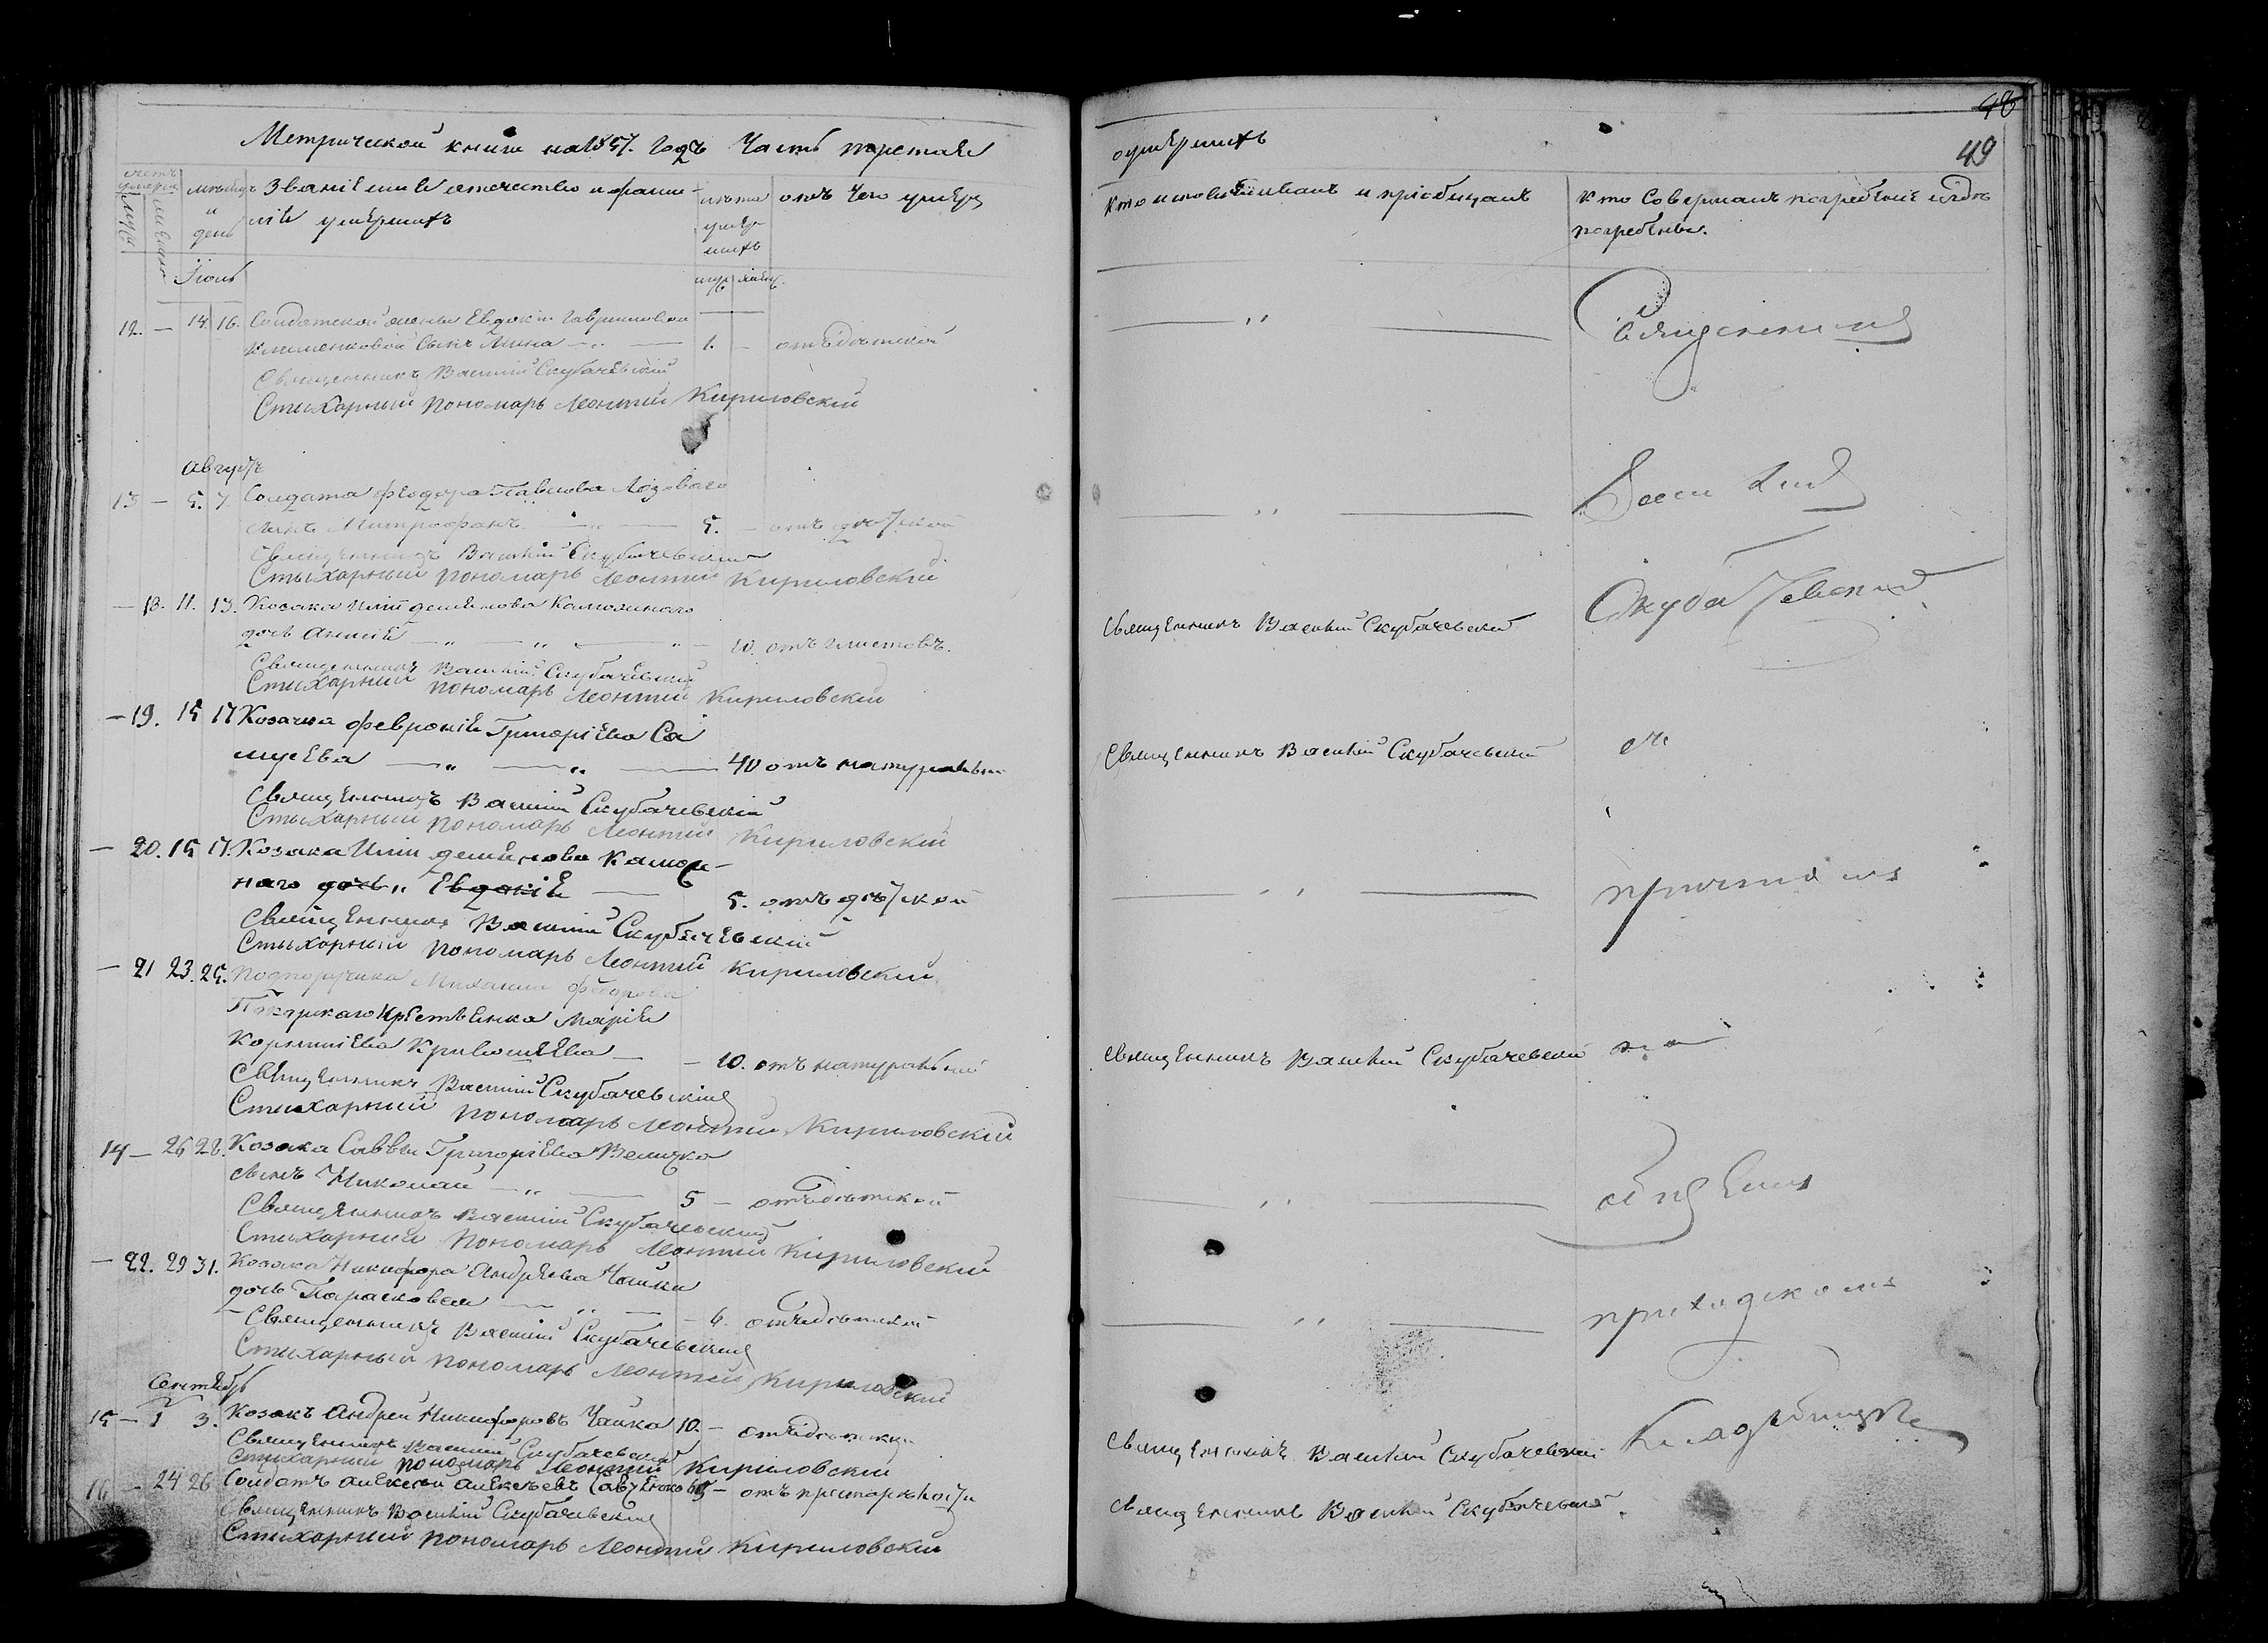 Метрической книги на 1857. годъ Часть третая
счетъ умерш.
мѣсяцъ и день
Званіе имя отечество и фами-
лія умершихъ
лѣта умер-
шихъ
отъ чего умеръ
муж. женс.
Іюль
12. — 14. 16. Солдатской жены Евдокіи Гавриловой
Клименковой сынъ Мина — „ — 1. — отъ дѣтской
Священникъ Василій Скубачевскій
Стыхарный пономарь Леонтий Кириловский
Августъ
13 — 5. 7. Солдата Феодора Павлова Лозоваго
сынъ Митрофанъ — „ — 5. — отъ дѣтской
Священникъ Василій Скубачевскій
Стыхарный пономарь Леонтий Кириловский
— 18. 11. 13. Козака Иліи Демянова
дочь — „ — „ — „ — 10. отъ глистовъ.
Священникъ Василій Скубачевскій
Стыхарный пономарь Леонтий Кириловский
— 19. 15 17 Козачка Февронія Григоріева Са
мусева — „ — „ — 40 отъ натуральной
Священникъ Василій Скубачевскій
Стыхарный пономарь Леонтий Кириловский
— 20. 15 17. Козака Иліи Демянова
наго дочь „ Евдокія — 5. отъ дѣтской
Священникъ Василій Скубачевскій
Стыхарный пономарь Леонтий Кириловский
— 21 23. 25. Подпоручика Михаила Феодорова
крестьянка Марія
Корниліева Кривошеева — — 10. отъ натуральной
Священникъ Василій Скубачевскій
Стыхарный пономарь Леонтий Кириловский
14 — 26 28. Козака Саввы Григоріева Величка
сынъ Николай — „ — 5 — отъ дѣтской
Священникъ Василій Скубачевскій
Стыхарный пономарь Леонтий Кириловский
— 22. 29 31. Козака Никифора Андреева Чайки
дочь Парасковея — „ — — 6. отъ дѣтской
Священникъ Василій Скубачевскій
Стыхарный пономарь Леонтий Кириловский
Сентябрь
15 — 1 3. Козакъ Андрей Никифоровъ Чайка 10. — отъ
Священникъ Василій Скубачевскій
Стыхарный пономарь Леонтий Кириловский
16 — 24 26 Солдатъ Алексѣй Алексѣевъ Савченко 65 — отъ престарѣлости
Священникъ Василій Скубачевскій
Стыхарный пономарь Леонтий Кириловский
48
49
о умершихъ
Кто исповѣдывалъ и пріобщалъ
Кто совершалъ погребеніе и гдѣ
погребены.
— „ — Священникъ
— „ — Василій
Скубачевскій
Священникъ Василій Скубачевскій
Священникъ Василій Скубачевскій съ
— „ — причтомъ
Священникъ Василій Скубачевскій на
— „ —
— „ — приходскомъ
Кладбищѣ
Священникъ Василій Скубачевскій
Священникъ Василій Скубачевскій.